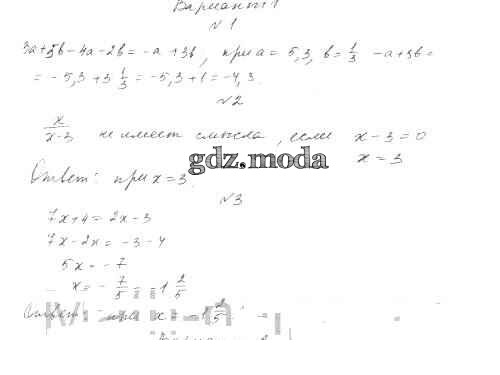 Вариант 1
№1
3a+5b-4a-2b = -a+3b, при a = 5,3, b = 1/3 -a+3b =
= -5,3+3 1/3 = -5,3+1 = -4,3.
№2
x/(x-3) не имеет смысла, если x-3=0
x=3
gdz.moda
Ответ: при x=3.
№3
7x+4 = 2x-3
7x-2x = -3-4
5x = -7
x = - 7/5 = -1 2/5
Ответ: при x = -1 2/5.